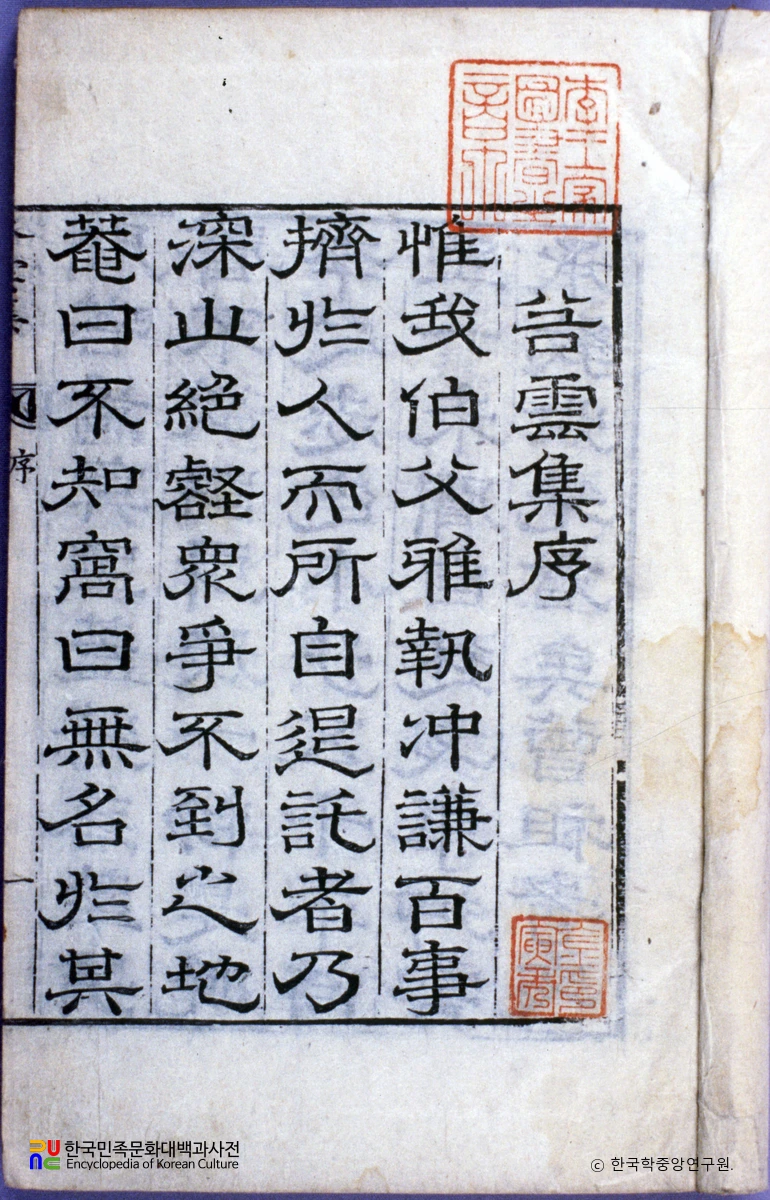 李王家圖書之章
谷雲集序
惟我伯父雅執冲謙百事
擠非人而所自退託者乃
深山絶壑衆爭不到之地
菴曰不知窩曰無名非其
序 一
한국민족문화대백과사전
Encyclopedia of Korean Culture
ⓒ 한국학중앙연구원.